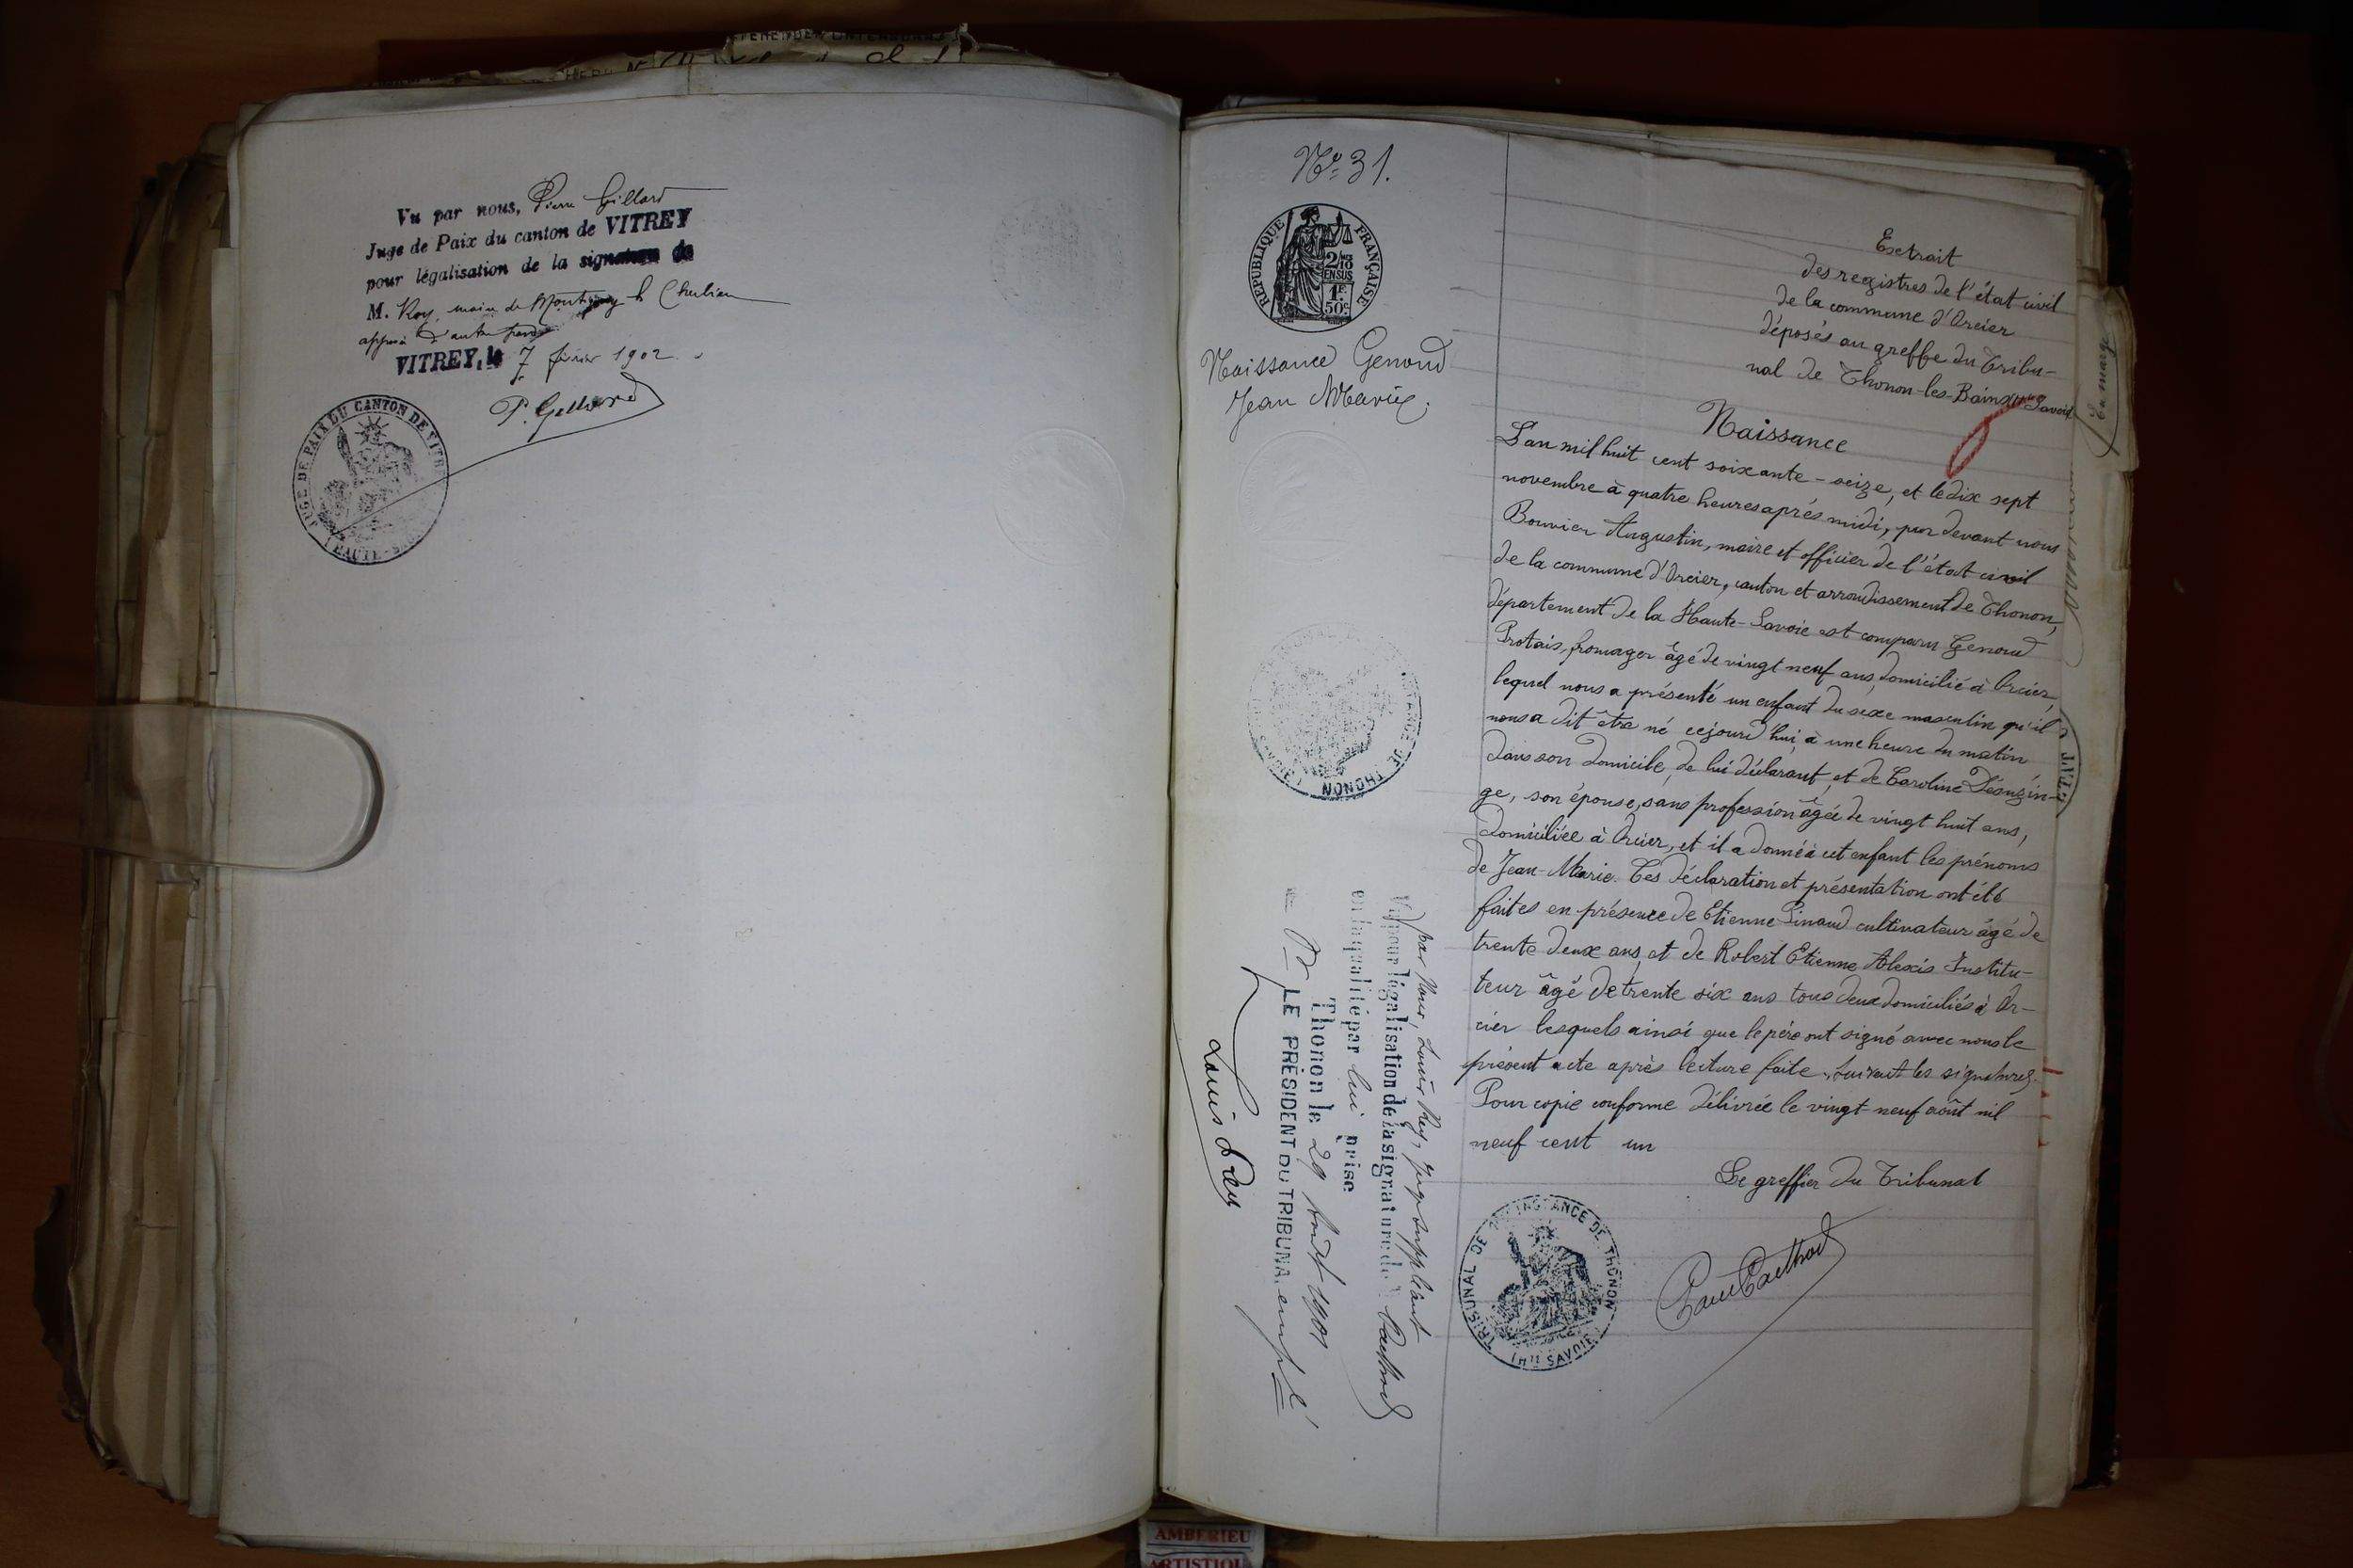 Vu par nous, Pierre Gillard
Juge de Paix du canton de VITREY
pour légalisation de la signature de
M. Roy, maire de Montigny
apposée d'autre part
VITREY, le 7 février 1902
P. Gillard
JUGE DE PAIX DU CANTON DE VITREY
HAUTE-SAONE
Nº 31.
RÉPUBLIQUE FRANÇAISE
2/10 EN SUS
1F 50c
Naissance Genoud
Jean Marie.
Extrait
des registres de l'état civil
de la commune d'Orcier
déposés au greffe du Tribu-
nal de Thonon-les-Bains Hte Savoie
Naissance
L'an mil huit cent soixante-seize, et le dix sept
novembre à quatre heures après midi, par devant nous
Bouvier Augustin, maire et officier de l'état civil
de la commune d'Orcier, canton et arrondissement de Thonon,
département de la Haute-Savoie est comparu Genoud
Protais, fromager âgé de vingt neuf ans, domicilié à Orcier,
lequel nous a présenté un enfant du sexe masculin qu'il
nous a dit être né cejourd'hui, à une heure du matin
dans son domicile, de lui déclarant, et de Caroline Désuzin-
ge, son épouse, sans profession âgée de vingt huit ans,
domiciliée à Orcier, et il a donné à cet enfant les prénoms
de Jean-Marie. Ces déclaration et présentation ont été
faites en présence de Etienne Pinaud cultivateur âgé de
trente deux ans, et de Robert Etienne Alexis Institu-
teur âgé de trente six ans tous deux domiciliés à Or-
cier lesquels ainsi que le père ont signé avec nous le
présent acte après lecture faite. Suivent les signatures.
Pour copie conforme délivrée le vingt neuf août mil
neuf cent un
Le greffier du Tribunal
TRIBUNAL DE 1ERE INSTANCE DE THONON
(HTE SAVOIE)
Vu par Nous, Louis Rey, juge suppléant
pour légalisation de la signature de M. Paethod
en la qualité par lui prise
Thonon le 29 Août 1901
Pr LE PRÉSIDENT DU TRIBUNAL empê
Louis Rey
En marge
AMBERIEU
ARTISTIQU